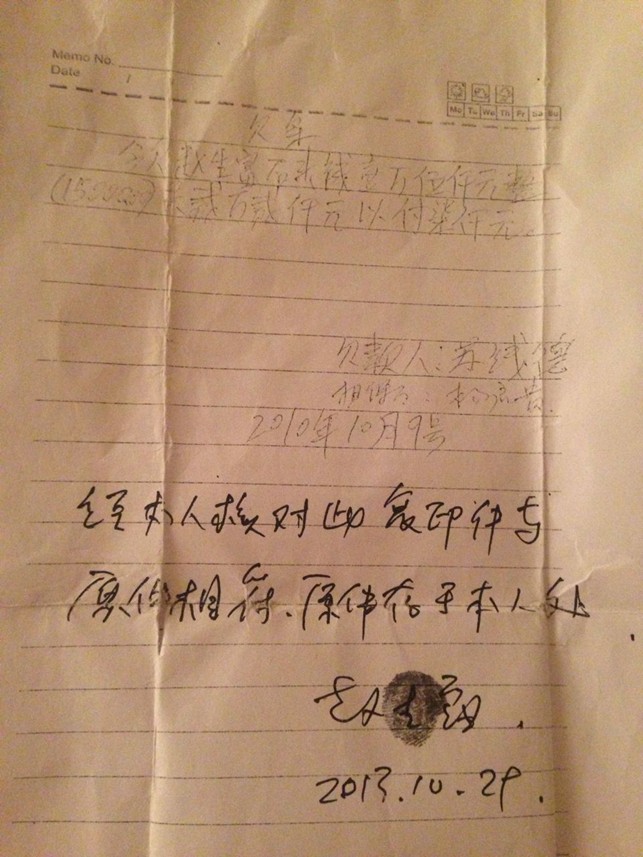 Memo No.
Date
Mo Tu We Th Fr Sa Su
欠条
今欠赵生富石末钱壹万伍仟元整
(15000) 贰万贰仟元以付柒仟元.
欠款人:苏线德
2010年10月9号
经本人核对此复印件与
原件相符、原件存于本人处.
赵生
2013.10.29.